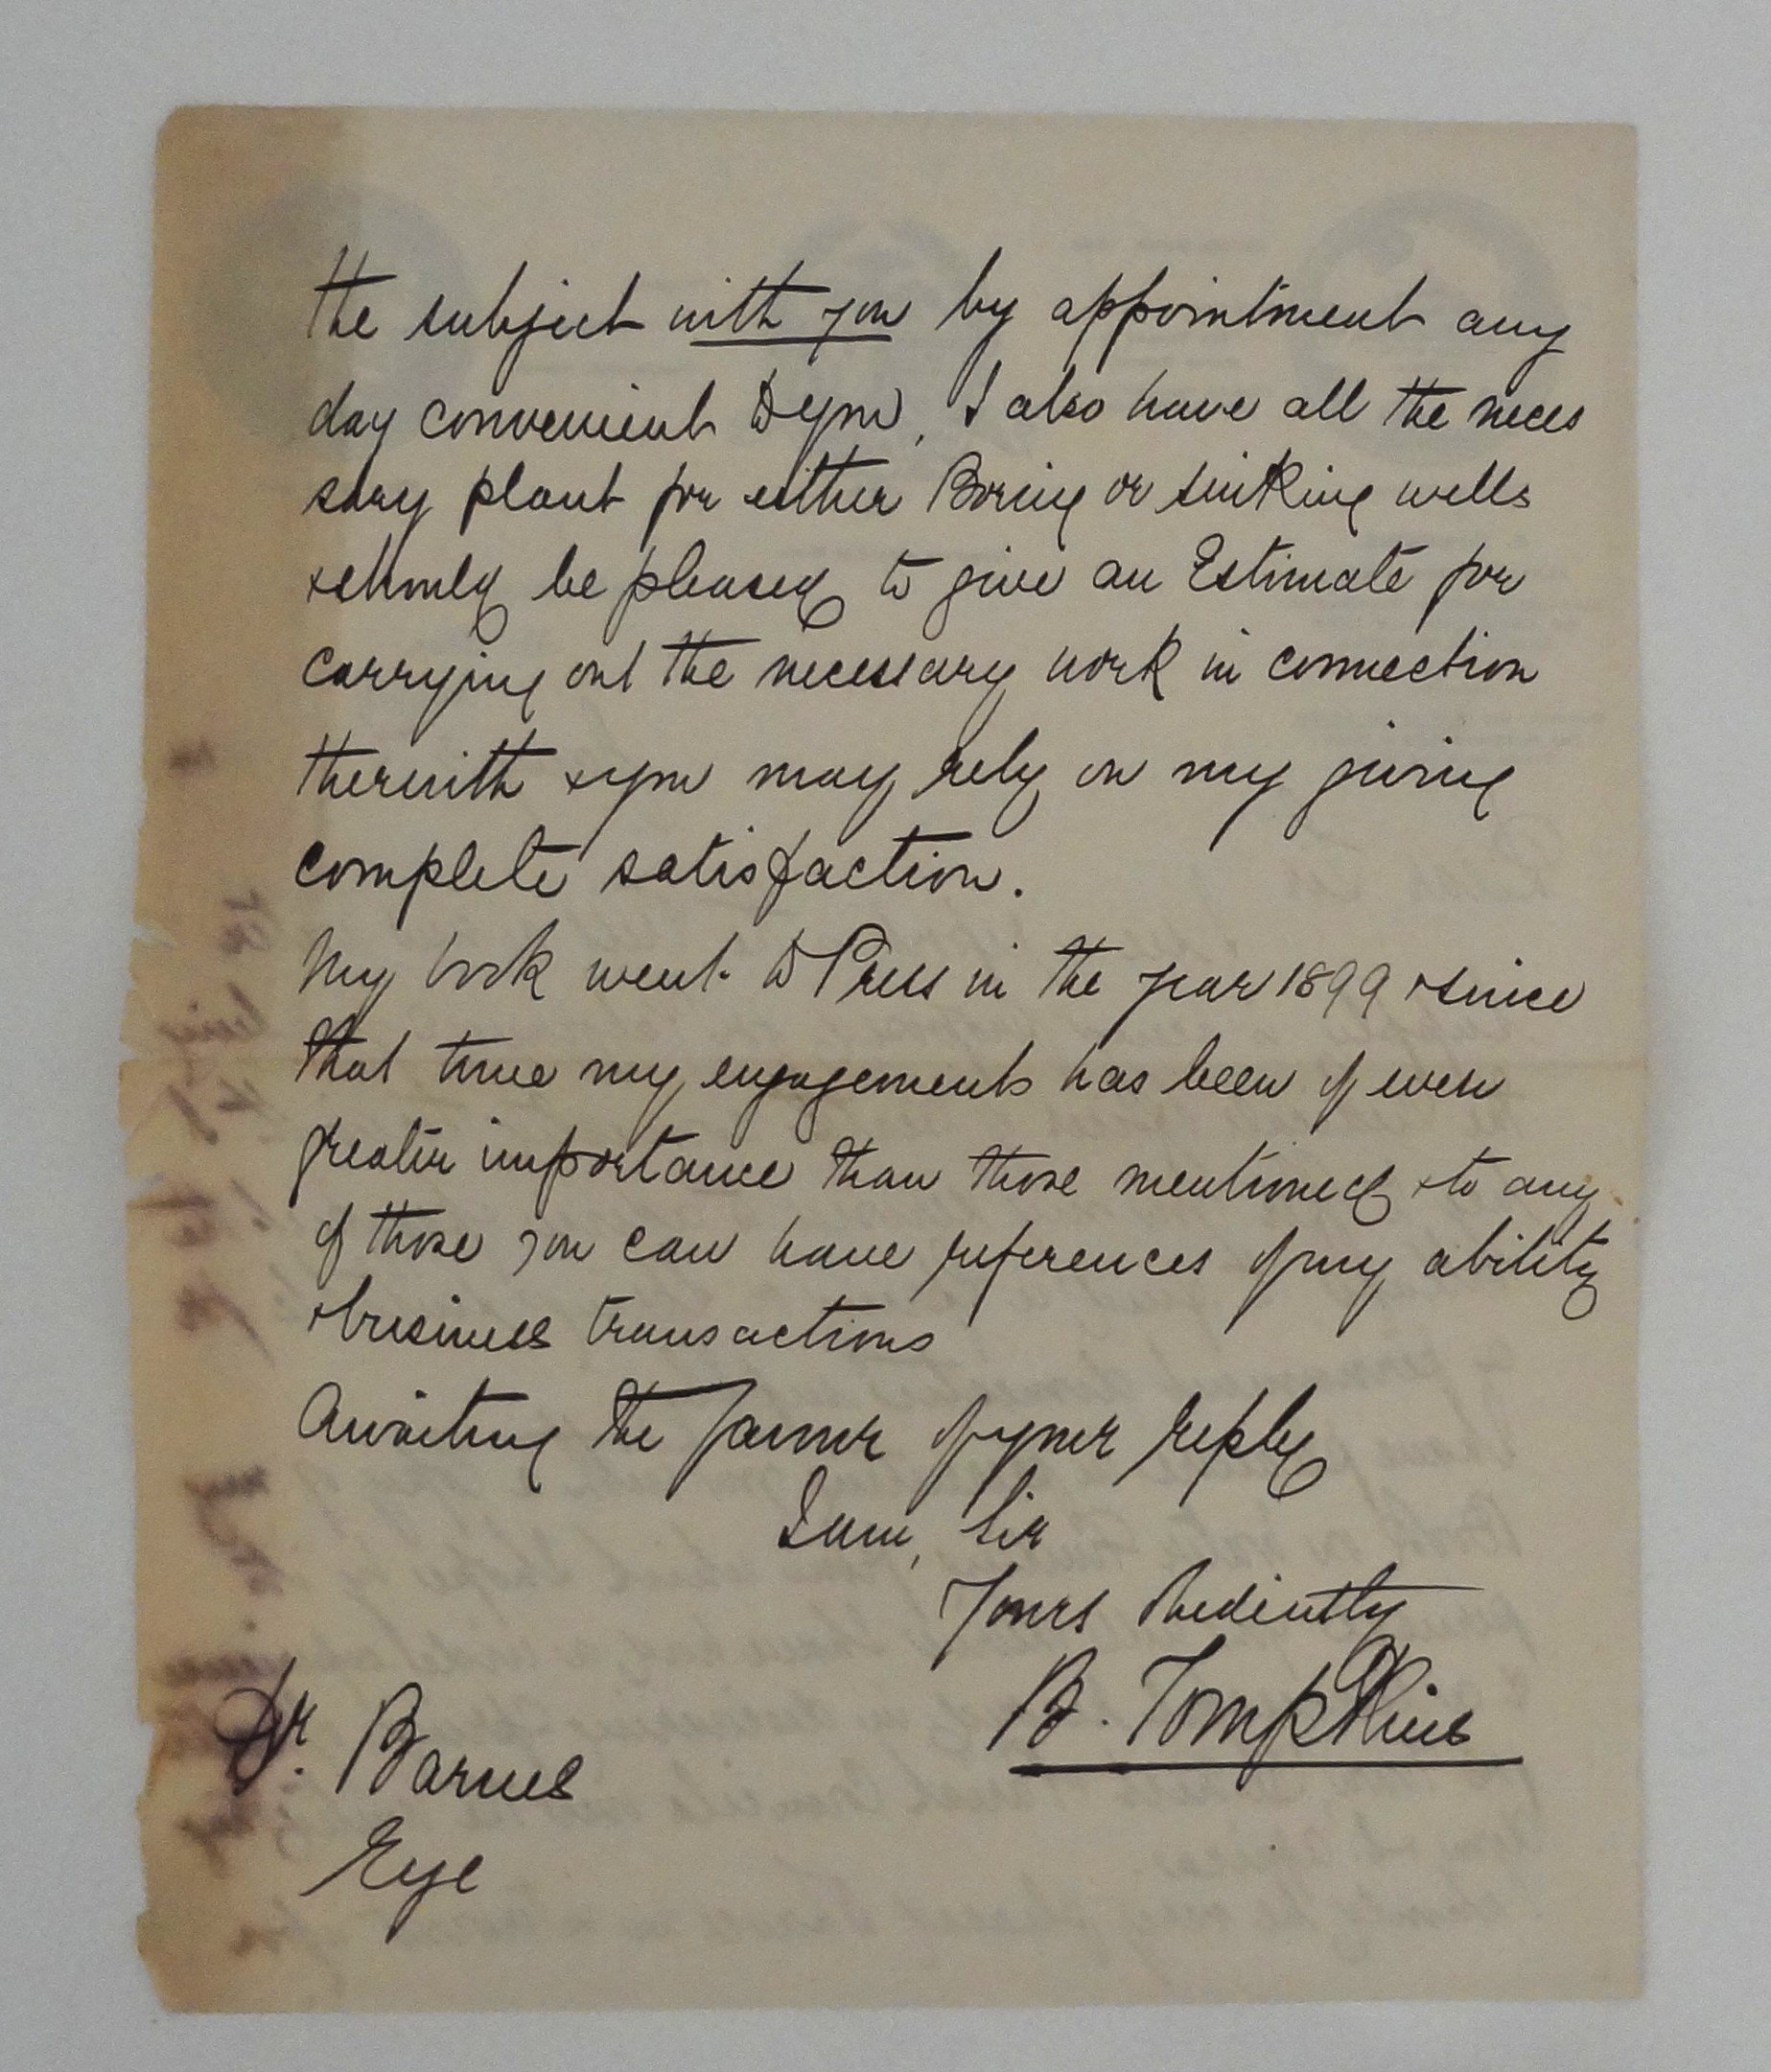 the subject with you by appointment any
day convenient to you, I also have all the neces
sary plant for either Boring or sinking wells
& should be pleased to give an Estimate for
carrying out the necessary work in connection
therwith & you may rely on my giving
complete satisfaction.
My book went to Press in the year 1899 & since
that time my engagements has been of even
greater importance than those mentioned & to any
of those you can have references of my ability
& business transactions
Awaiting the favour of your reply
I am, Sir
Yours Obediently
B. Tompkins
Dr. Barnes
Eye